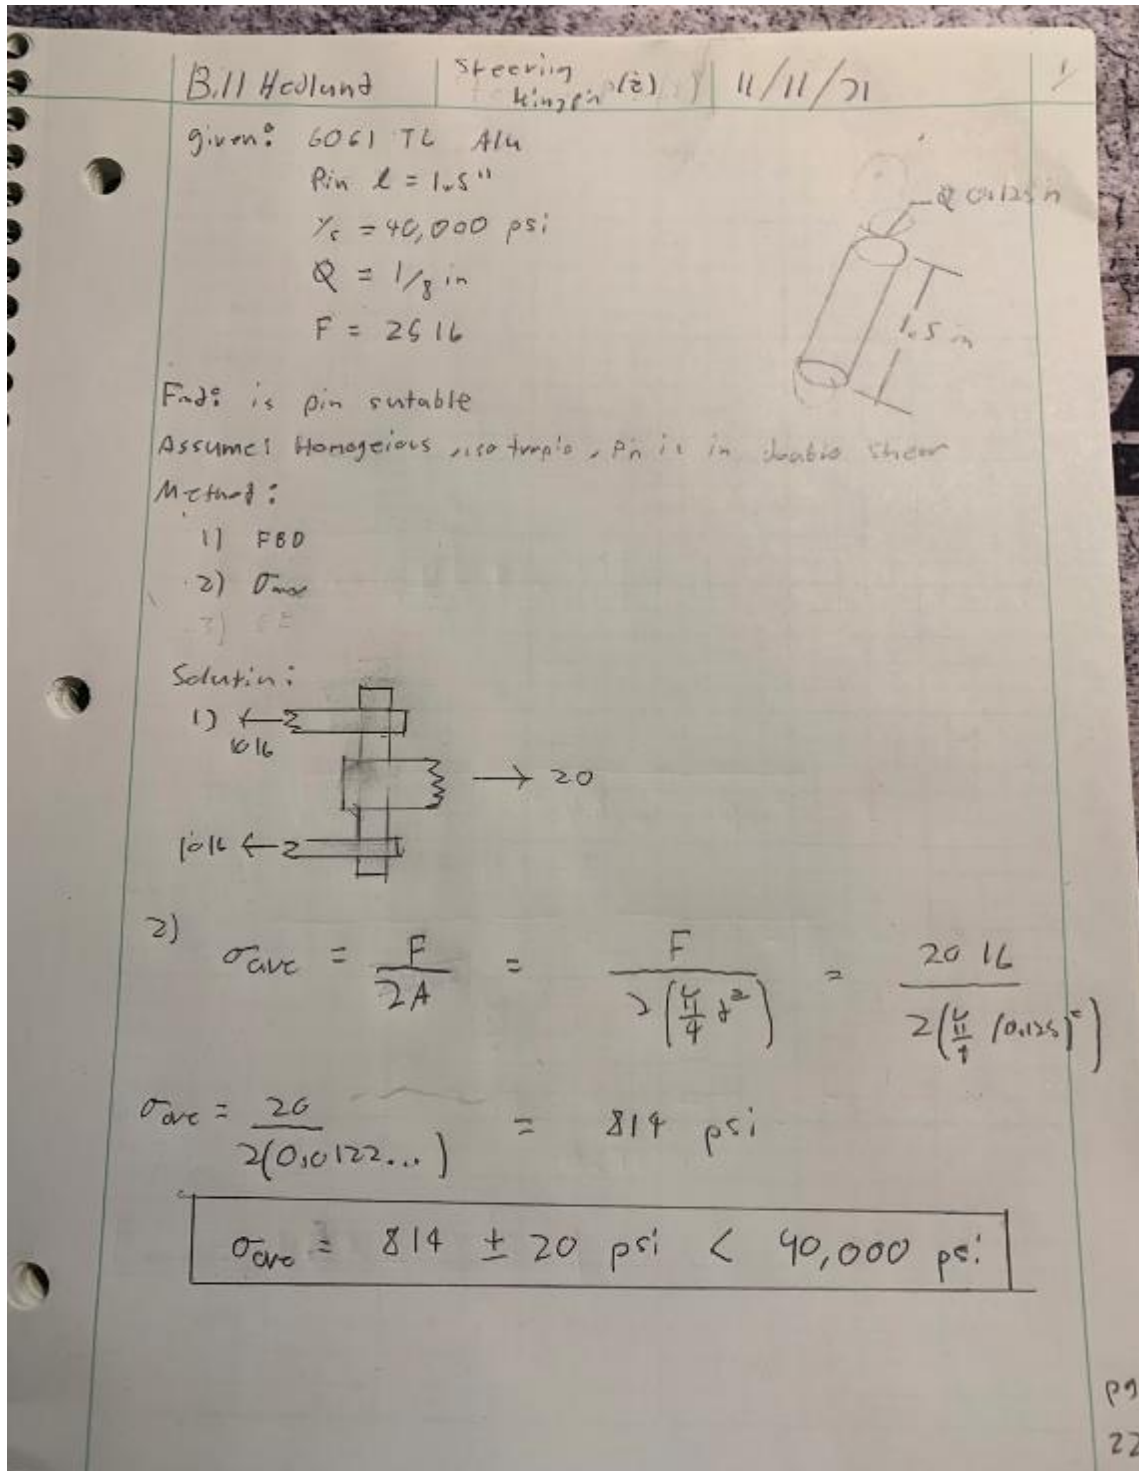 Bill Hedlund | Steering kingpin (2) | 11/11/21 1/
given: 6061 T6 Alu
Pin l = 1.5"
Ys = 40,000 psi
Q = 1/8 in
F = 25 lb
Q 0.125 in
1.5 in
Find: is pin sutable
Assume: Homogeious, isotropic, Pin is in double shear
Method:
1) FBD
2) σmax
Solutin:
1)
10 lb
20
10 lb
2) σave = F / 2A = F / 2(π/4 d²) = 20 lb / 2(π/4 (0.125)²)
σave = 20 / 2(0.0122...) = 814 psi
σave = 814 ± 20 psi < 40,000 psi
pg
22